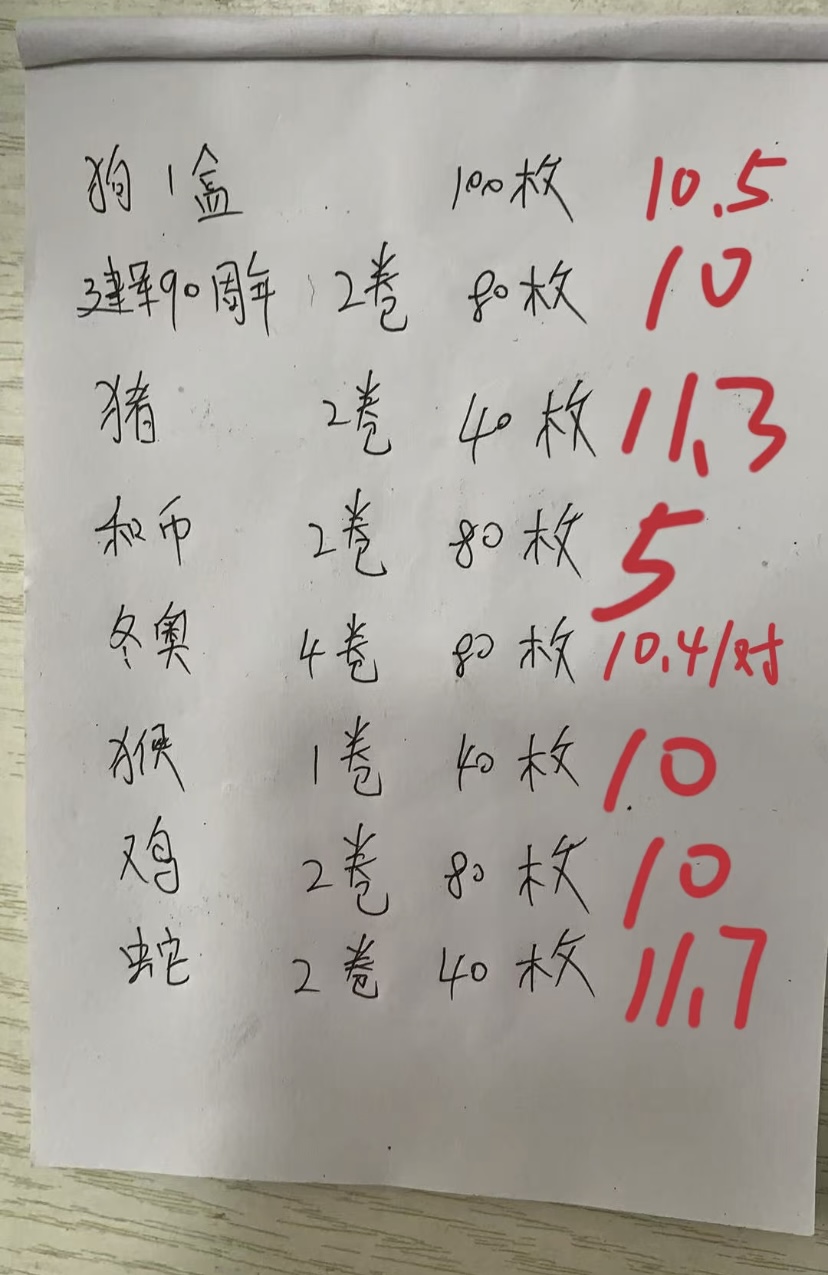 狗 1盒 100枚 10.5
建军90周年 2卷 80枚 10
猪 2卷 40枚 11.3
和币 2卷 80枚 5
冬奥 4卷 80枚 10.4/对
猴 1卷 40枚 10
鸡 2卷 80枚 10
蛇 2卷 40枚 11.7